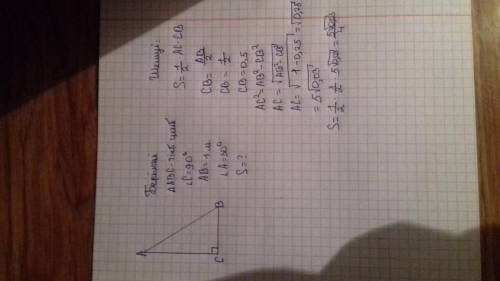 A
B
C
ΔABC-тікб
∠C=90°
AB=1 м
∠A=30°
S=?
Шешуі:
S=1/2 AC·CB
CB=AB/2
CB=1/2
CB=0,5
AC²=AB²-CB²
AC=√AB²-CB²
AC=√1-0,25=√0,75
=5√0,03
S=1/2·1/2·5√0,03=5√0,03/4